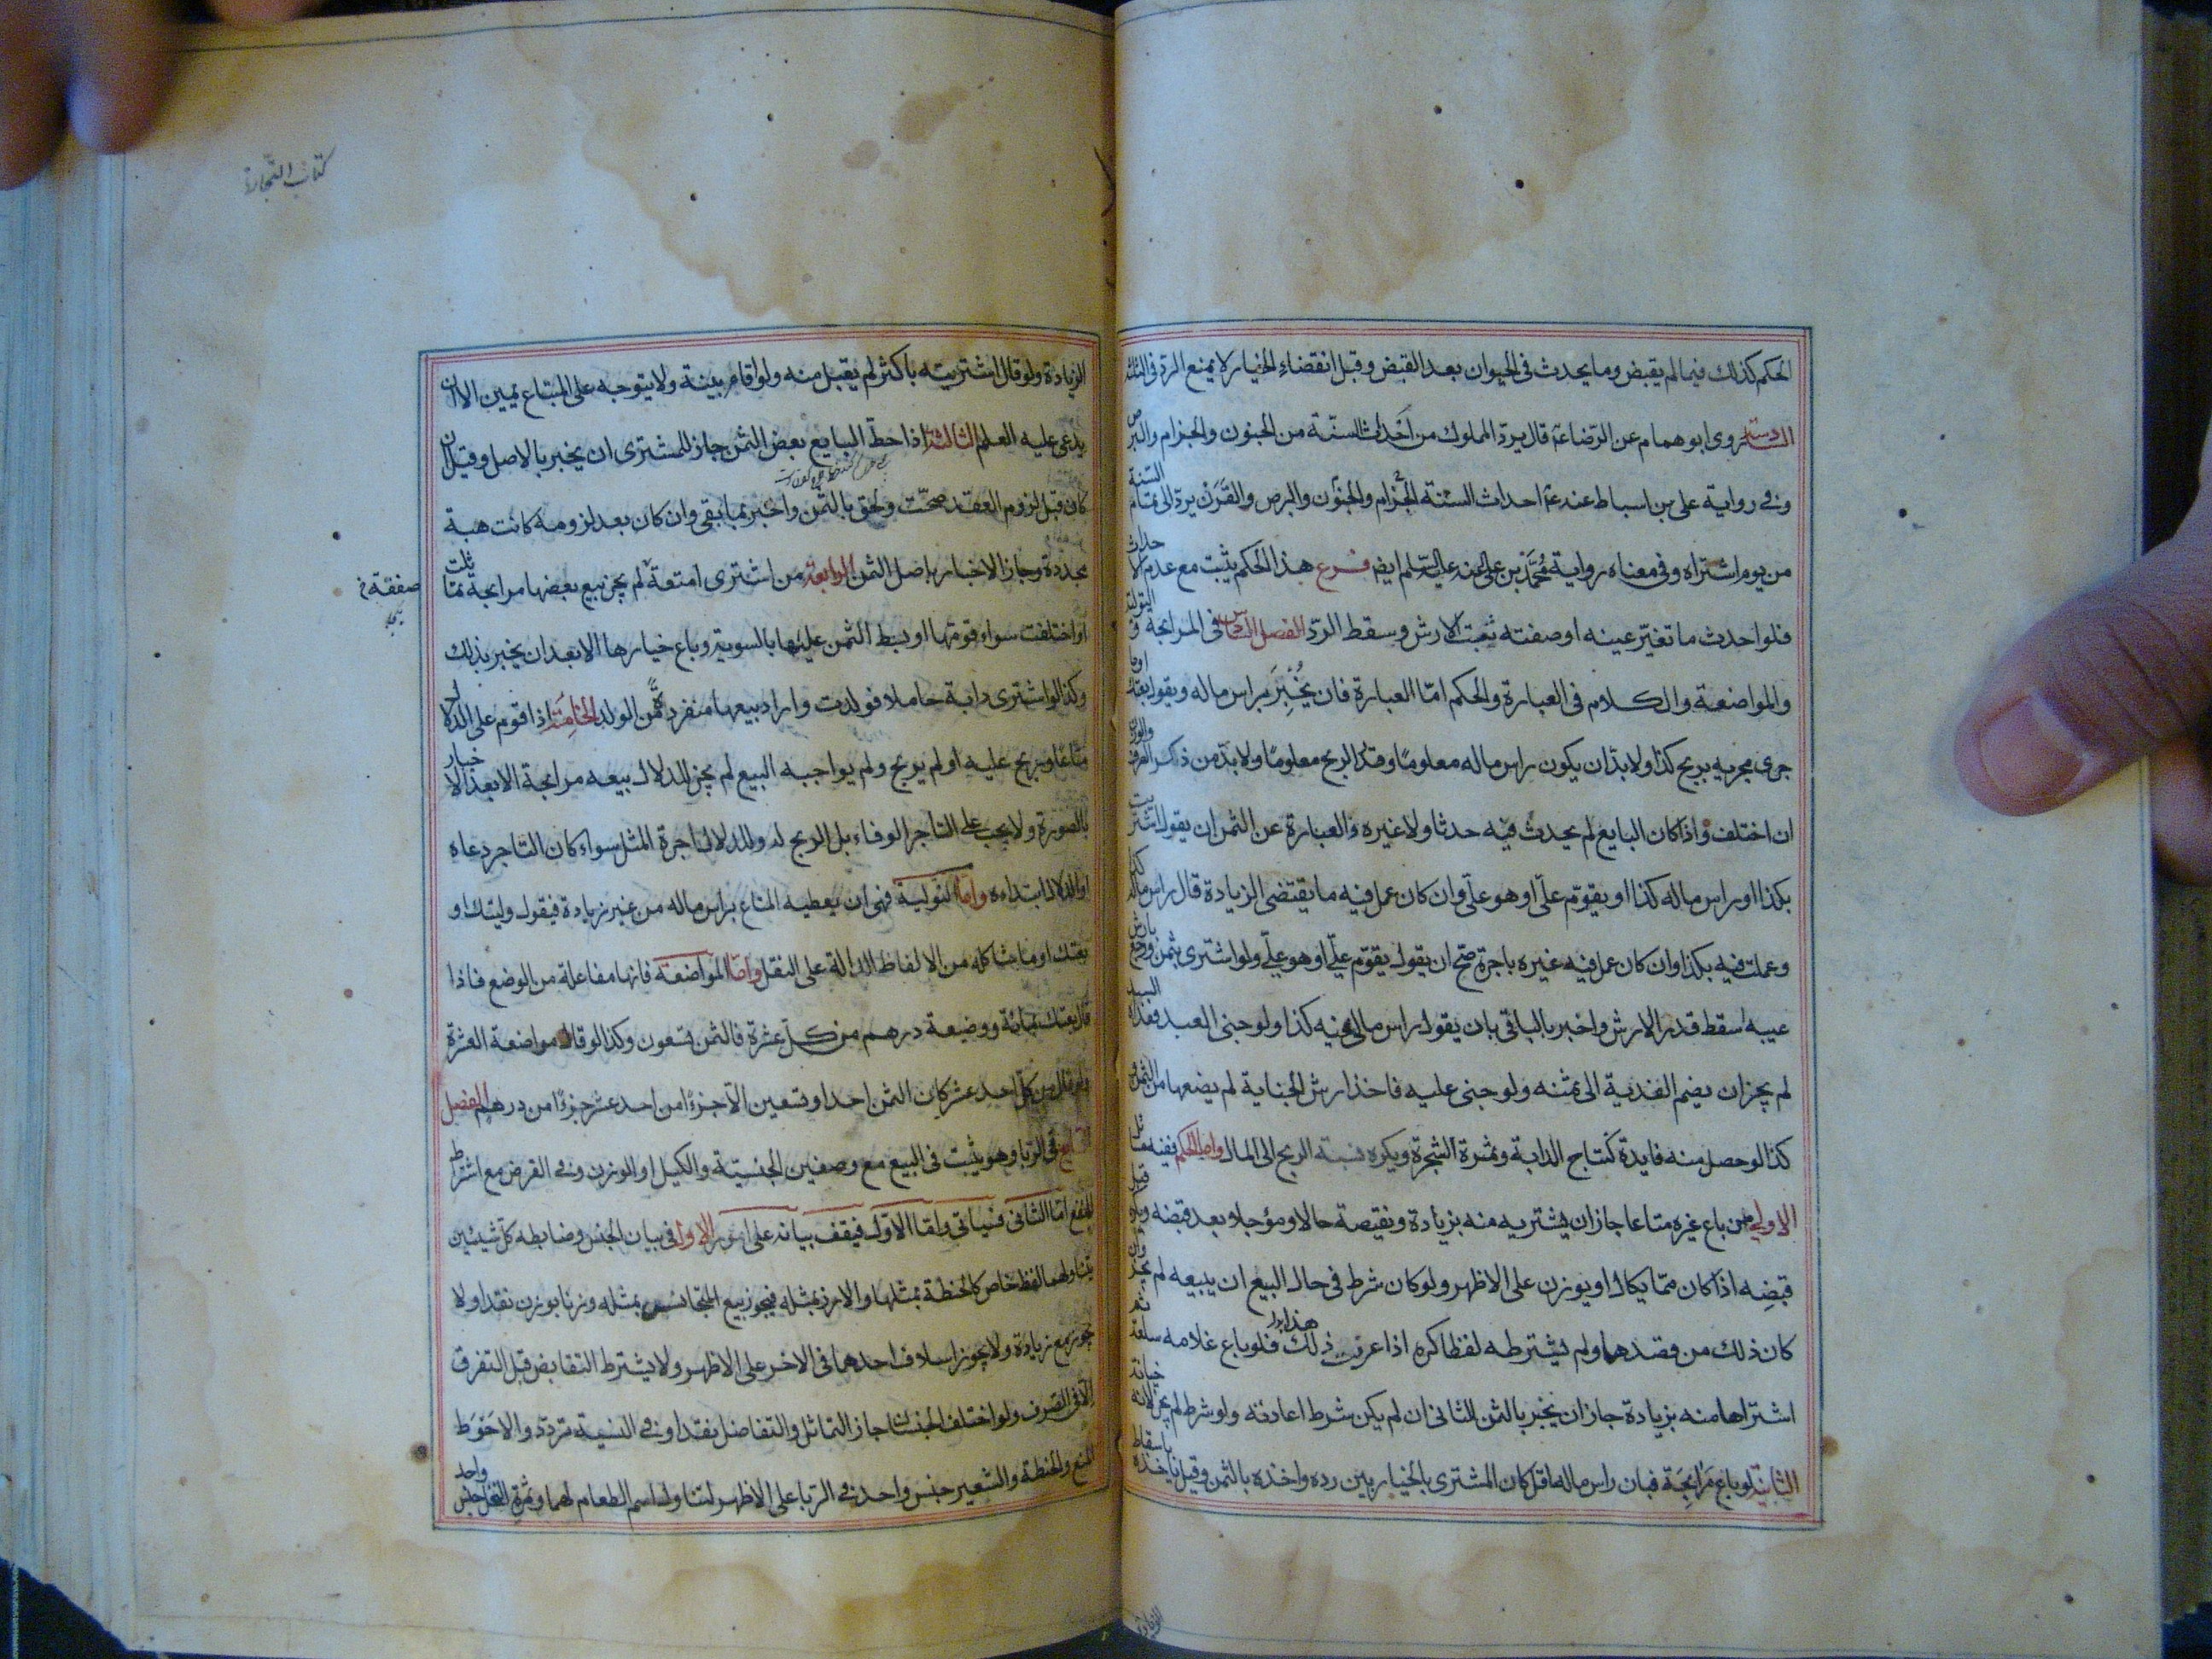 الحكم كذلك فيما لم يقبض وما يحدث فى الحيوان بعد القبض وقبل انقضاء الخيار لا يمنع الرد فى الثلثة
السادسة روى ابوهمام عن الرضا ع قال يرد المملوك من احداث السنة من الجنون والجذام والبرص
وفى رواية على بن اسباط عنه ع احداث السنة الجذام والجنون والبرص والقرن يرد الى تمام السنة
من يوم اشتراه وفى معناه رواية محمد بن على عنه عليه السلم ايضا فرع هذا الحكم يثبت مع عدم الاحداث
فلو احدث ما تغير عينه او صفته ثبت الارش وسقط الرد الفصل السادس فى المرابحة والتولية
والمواضعة والكلام فى العبارة والحكم اما العبارة فان يخبر براس ماله ويقول بعتك او ما
جرى مجريه بربح كذا ولا بد ان يكون راس ماله معلوما وقدر الربح معلوما ولا بد من ذكر الصرف والوزن
ان اختلف واذا كان البايع لم يحدث فيه حدثا ولا غيره فالعبارة عن الثمن ان يقول اشتريت
بكذا او راس ماله كذا او يقوم على او هو على وان كان عمل فيه ما يقتضى الزيادة قال راس ماله كذا
وعملت فيه بكذا وان كان عمل فيه غيره باجرة صح ان يقول يقوم على او هو على ولو اشترى بثمن ورجع بارش
عيبه اسقط قدر الارش واخبر بالباقى بان يقول راس مالى فيه كذا ولو جنى العبد ففداه السيد
لم يجز ان يضم الفدية الى ثمنه ولو جنى عليه فاخذ ارش الجناية لم يضعها من الثمن و
كذا لو حصل منه فايدة كنتاج الدابة وثمرة الشجرة ويكره نسبة الربح الى المال واما الحكم ففيه مسائل
الاولى من باع غيره متاعا جاز ان يشتريه منه بزيادة ونقيصة حالا ومؤجلا بعد قبضه ويكره قبل
قبضه اذا كان مما يكال او يوزن على الاظهر ولو كان شرط فى حال البيع ان يبيعه لم يجز وان
كان ذلك من قصدهما ولم يشترطه لفظا كره اذا عرفت ذلك فلو باع غلامه سلعة ثم
اشتراها منه بزيادة جاز ان يخبر بالثمن الثانى ان لم يكن شرط اعادته ولو شرط لم يجز لانه خيانة
الثانية لو باع مرابحة فبان راس ماله اقل كان المشترى بالخيار بين رده واخذه بالثمن وقيل ياخذه باسقاط
الزيادة
كتاب التجارة
الزيادة ولو قال اشتريته باكثر لم يقبل منه ولو اقام بينة ولا يتوجه على المبتاع يمين الا ان
يدعى عليه العلم الثالثة اذا حط البايع بعض الثمن جاز للمشترى ان يخبر بالاصل وقيل ان
كان قبل لزوم العقد صحت ولحق بالثمن واخبر بما بقى وان كان بعد لزومه كانت هبة
مجددة وجاز الاخبار باصل الثمن الرابعة من اشترى امتعة لم يجز بيع بعضها مرابحة تماثلت
صفقة
او اختلفت سواء قومها او بسط الثمن عليها بالسوية وباع خيارها الا بعد ان يخبر بذلك
وكذا لو اشترى دابة حاملا فولدت واراد بيعها منفردة عن الولد الخامسة اذا قوم على الدلال
متاعا وربح عليه او لم يربح ولم يواجبه البيع لم يجز للدلال بيعه مرابحة الا بعد الاخبار
بالصورة ولا يجب على التاجر الوفاء بل الربح له وللدلال اجرة المثل سواء كان التاجر دعاه
او الدلال ابتداءه واما التولية فهى ان يعطيه المتاع براس ماله من غير زيادة فيقول وليتك او
بعتك او ما شاكله من الالفاظ الدالة على النقل واما المواضعة فانها مفاعلة من الوضع فاذا
قال بعتك بمائة ووضيعة درهم من كل عشرة فالثمن تسعون وكذا لو قال مواضعة العشرة
ولو قال من كل احد عشر كان الثمن احدا وتسعين الا جزءا من احد عشر جزءا من درهم الفصل
السابع فى الربا وهو يثبت فى البيع مع وصفين الجنسية والكيل او الوزن وفى القرض مع اشتراط
النفع اما الثانى فسياتى واما الاول فيقف بيانه على امور الاول فى بيان الجنس وضابطه كل شيئين
يتناولهما لفظ خاص كالحنطة بمثلها والارز بمثله فيجوز بيع المتجانس بمثله وزنا بوزن نقدا ولا
يجوز مع زيادة ولا يجوز اسلاف احدهما فى الاخر على الاظهر ولا يشترط التقابض قبل التفرق
الا فى الصرف ولو اختلف الجنسان جاز التماثل والتفاضل نقدا وفى النسية تردد والاحوط
المنع والحنطة والشعير جنس واحد فى الربا على الاظهر لتناول اسم الطعام لهما وثمرة النخل جنس واحد